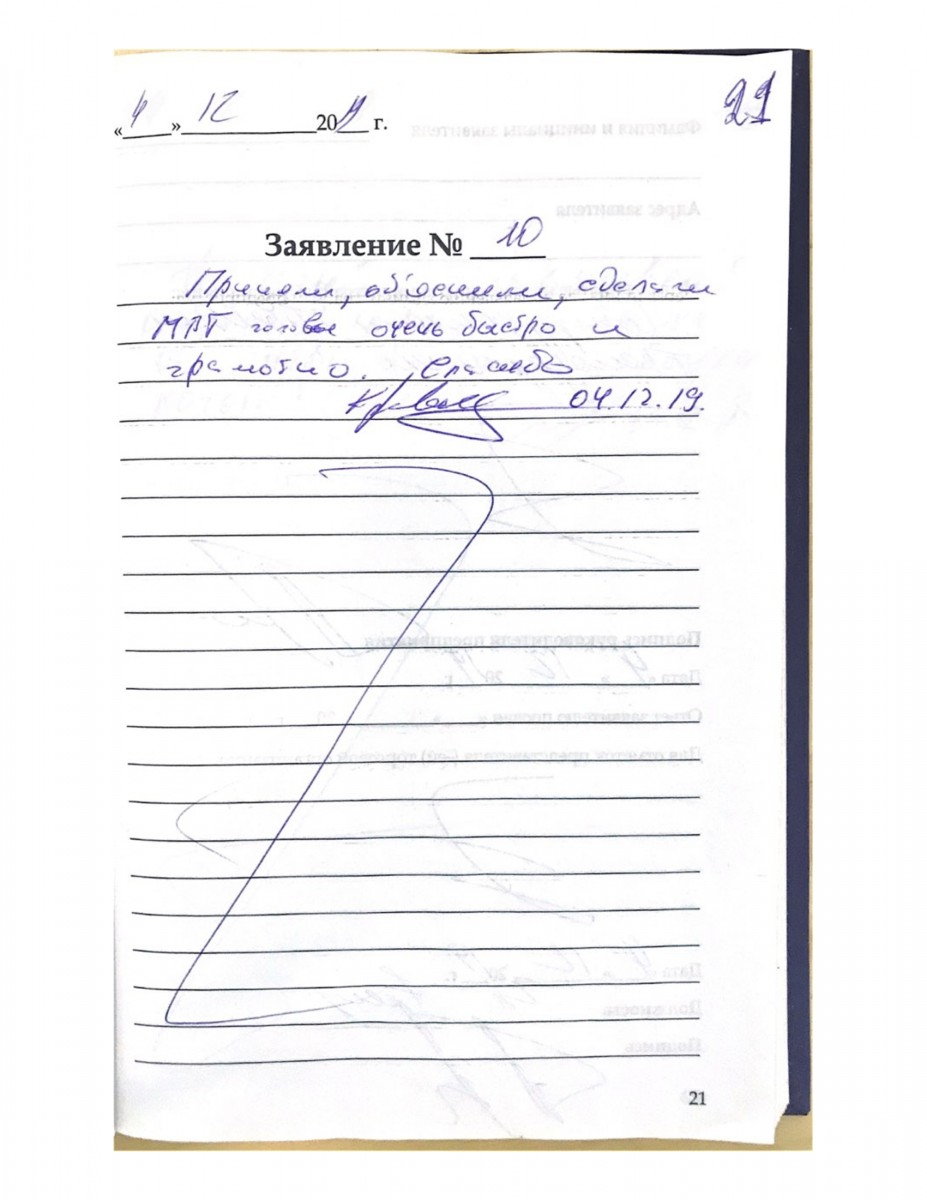 21
« 4 » 12 2019 г.
Заявление № 10
Приняли, объяснили, сделали
МРТ головы очень быстро и
грамотно. Спасибо
04.12.19.
21